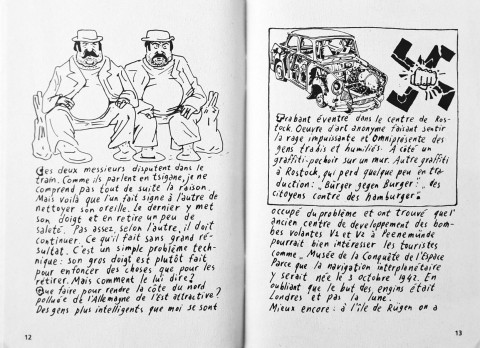 Ces deux messieurs disputent dans le
train. Comme ils parlent en tsigane, je ne
comprend pas tout de suite la raison.
Mais voilà que l'un fait signe à l'autre de
nettoyer son oreille. Le dernier y met
son doigt et en retire un peu de
saleté. Pas assez, selon l'autre, il doit
continuer. Ce qu'il fait sans grand ré-
sultat. C'est un simple problème tech-
nique : son gros doigt est plutôt fait
pour enfoncer des choses que pour les
retirer. Mais comment le lui dire ?
Que faire pour rendre la côte du nord
polluée de l'Allemagne de l'est attractive ?
Des gens plus intelligents que moi se sont
12
Trabant éventré dans le centre de Ros-
tock. Oeuvre d'art anonyme faisant sentir
la rage impuissante et omniprésente des
gens trahis et humiliés. A côté un
graffiti-pochoir sur un mur. Autre graffiti
à Rostock, qui perd quelque peu en tra-
duction : „Bürger gegen Burger : „des
citoyens contre des hamburger"
occupé du problème et ont trouvé que l'
ancien centre de développement des bom-
bes volantes V1 et V2 à Peenemünde
pourrait bien intéresser les touristes
comme „Musée de la Conquête de l'Espace
Parce que la navigation interplanétaire
y serait née le 3 octobre 1942. En
oubliant que le but des engins était
Londres et pas la lune.
Mieux encore : à l'île de Rügen on a
13